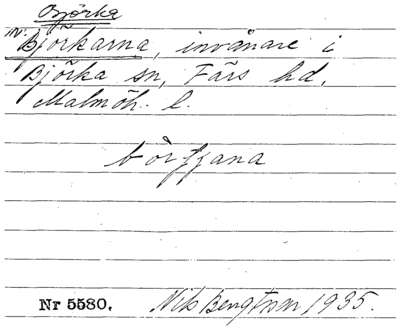 Björka
Björkarna, invånare i
Björka sn, Färs hd,
Malmöh. l.
Nr 5580. Nils Bengtsson 1935.